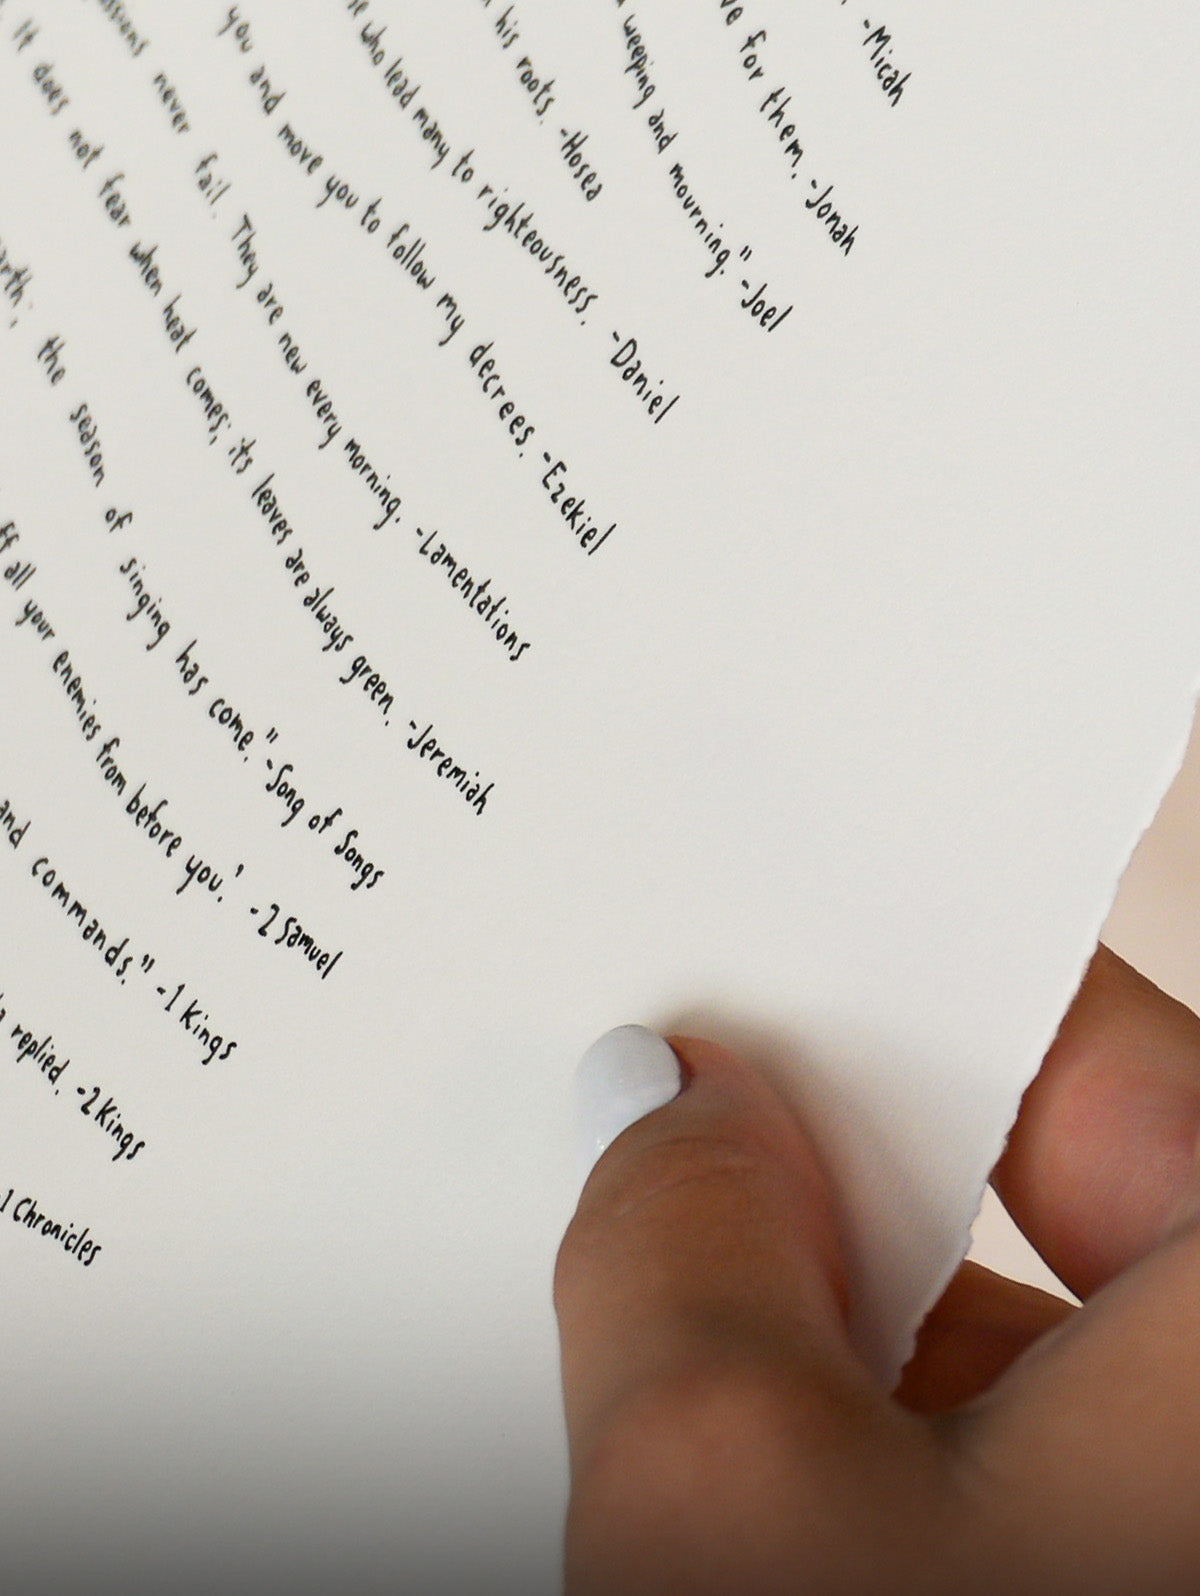 -Micah
for them. -Jonah
weeping and mourning." -Joel
his roots. -Hosea
who lead many to righteousness. -Daniel
you and move you to follow my decrees. -Ezekiel
never fail. They are new every morning. -Lamentations
It does not fear when heat comes; its leaves are always green. -Jeremiah
the season of singing has come." -Song of Songs
all your enemies from before you.' -2 Samuel
and commands." -1 Kings
replied. -2 Kings
-1 Chronicles